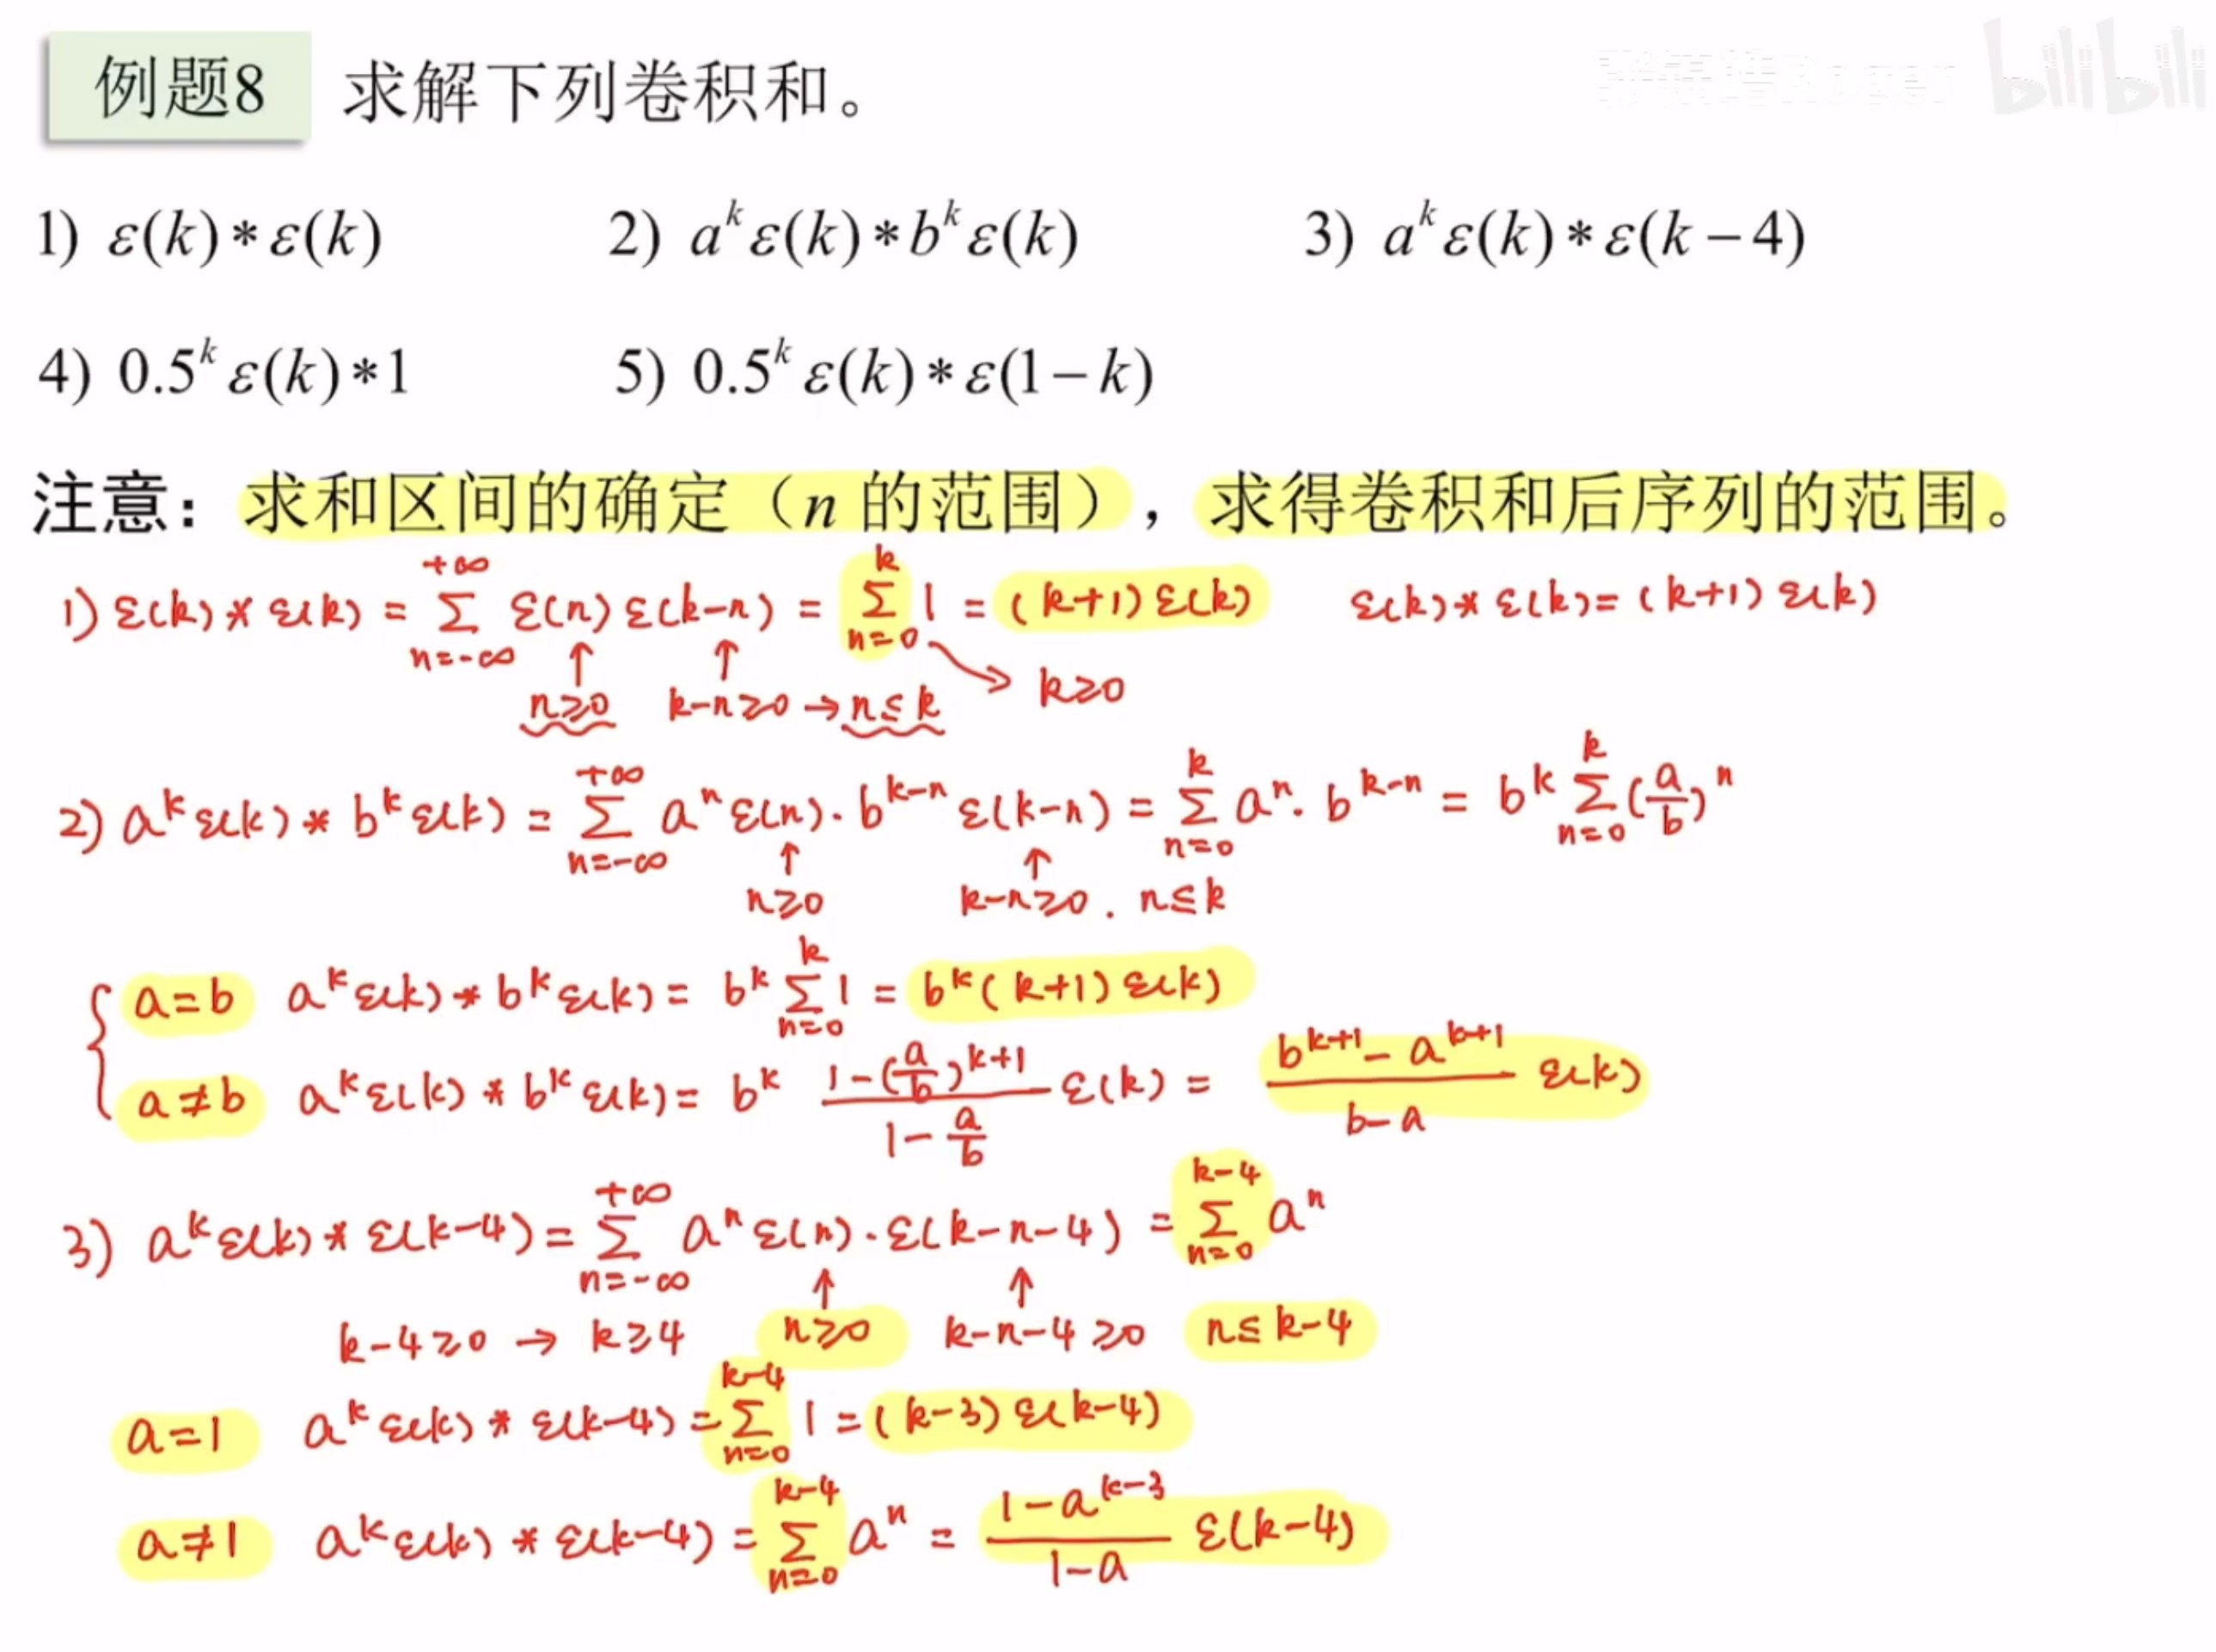 例题8 求解下列卷积和。
bilibili
1) ε(k)*ε(k) 2) a^k ε(k)*b^k ε(k) 3) a^k ε(k)*ε(k−4)
4) 0.5^k ε(k)*1 5) 0.5^k ε(k)*ε(1−k)
注意：求和区间的确定（n 的范围），求得卷积和后序列的范围。
1) ε(k)*ε(k) = Σ_{n=-∞}^{+∞} ε(n)ε(k-n) = Σ_{n=0}^{k} 1 = (k+1)ε(k) ε(k)*ε(k)=(k+1)ε(k)
↑ ↑
n≥0 k-n≥0 → n≤k → k≥0
2) a^k ε(k)*b^k ε(k) = Σ_{n=-∞}^{+∞} a^n ε(n)·b^{k-n} ε(k-n) = Σ_{n=0}^{k} a^n·b^{k-n} = b^k Σ_{n=0}^{k} (a/b)^n
↑ ↑
n≥0 k-n≥0. n≤k
{ a=b a^k ε(k)*b^k ε(k) = b^k Σ_{n=0}^{k} 1 = b^k(k+1)ε(k)
a≠b a^k ε(k)*b^k ε(k) = b^k (1-(a/b)^{k+1})/(1-a/b) ε(k) = (b^{k+1}-a^{k+1})/(b-a) ε(k)
3) a^k ε(k)*ε(k-4) = Σ_{n=-∞}^{+∞} a^n ε(n)·ε(k-n-4) = Σ_{n=0}^{k-4} a^n
↑ ↑
k-4≥0 → k≥4 n≥0 k-n-4≥0 n≤k-4
a=1 a^k ε(k)*ε(k-4) = Σ_{n=0}^{k-4} 1 = (k-3)ε(k-4)
a≠1 a^k ε(k)*ε(k-4) = Σ_{n=0}^{k-4} a^n = (1-a^{k-3})/(1-a) ε(k-4)